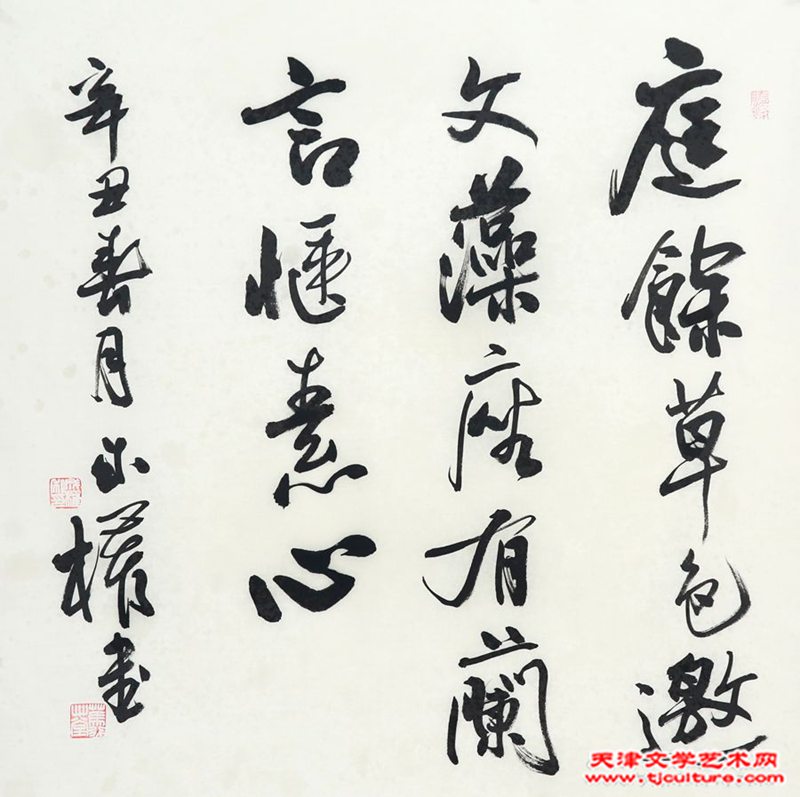 庭餘草色邀
文藻座有蘭
言愜素心
辛丑春月 書
天津文学艺术网
www.tjculture.com